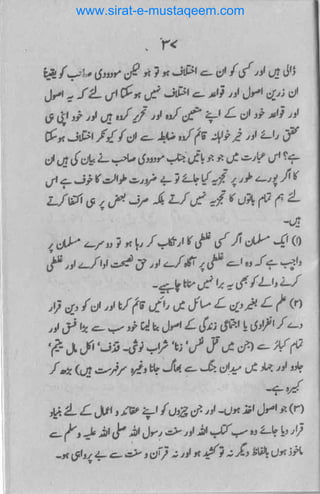 www.sirat-e-mustaqeem.com
۳۷
ڈالی ہیں اور کسی کو ان سے اختلاف ہو تو ہو لیکن مودودی صاحب کو یقیناً
ان زریں اصول اور قواعد سے اختلاف نہیں ہو سکتا اس لئے کہ یہ اصول
اور قواعد خود ان کے اپنے متعین کردہ اور تحریر کردہ ہیں اور خود اپنی ہی
محقق رائے اور خیر خواہانہ قائم کردہ ضابطہ سے ان کو کیونکر اختلاف ہو سکتا
ہے؟ اس عبارت میں جو جو باتیں جناب مودودی صاحب نے بیان کی ہیں ان
کا اگر پورے طور پر تجزیہ کیا جائے تو بے ضرورت طوالت کا خوف ہے اس
لئے ہم تمام باتوں کا تجزیہ نہیں کرتے بلکہ صرف بعض پر ہی اکتفا کرتے
ہیں۔
(۱) ایک مسلمان اگر کسی غلطی کا ارتکاب کر رہا ہو تو دوسرے مسلمان پر
واجب ہے کہ اسے اس غلطی پر آگاہ کرے اور حق نصیحت ادا کرے اور غلطی
کرنے والے کو بھی یہ برا نہیں منانا چاہیے۔
(۲) علم کے بغیر دین کے مسائل میں رائیں قائم کرنا اور ان کو دین قرار
دے کر انفرادی یا اجتماعی زندگی کے اصول بنا لینا خود سب سے بڑا فسق اور
تمام کبائر سے (جن میں قتل نفس، زنا، شراب نوشی، قذف، اکل مال یتیم،
جادو اور جہاد میں میدان جنگ سے بھاگ جانا وغیرہ سرفہرست ہیں) بڑھ کر
کبیرہ ہے۔
(۳) جو اصول اخذ ہوں اور جن چیزوں کو اپنے عقائد و اعمال کے لئے بنیاد
قرار دیا جائے وہ سب کتاب اللہ اور سنت رسول اللہ صلی اللہ علیہ وسلم سے
ماخوذ ہوں بالفاظ دیگر نہ تو کشید ہو اور نہ قرآن و سنت سے بے پروائی ہو۔